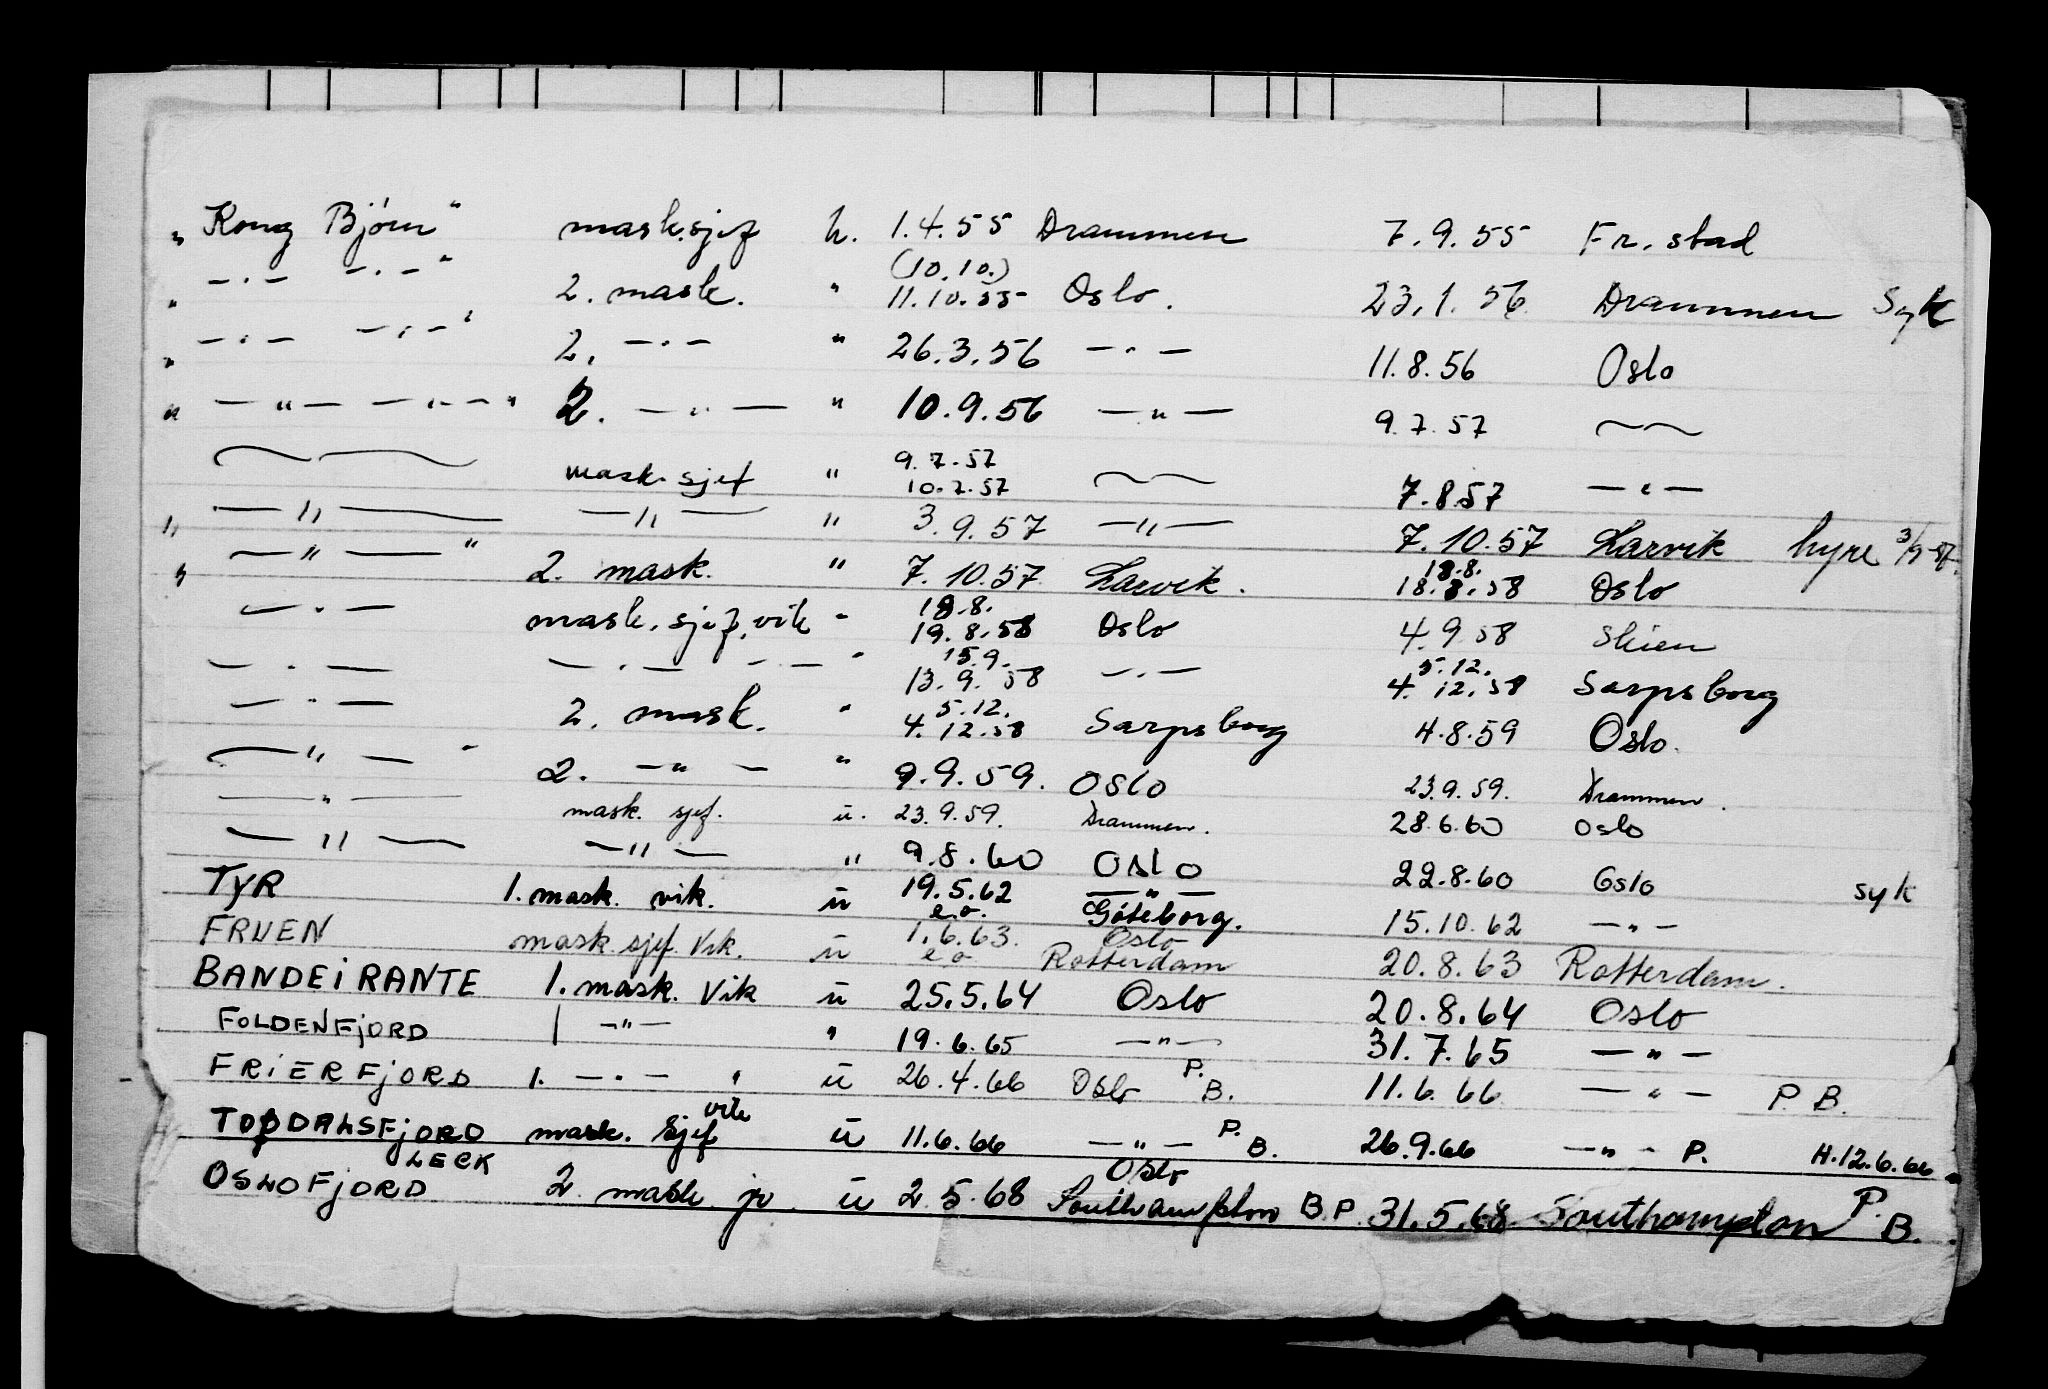 „ Kong Bjørn" mask.sjef h. 1.4.55 Drammen 7.9.55 Fr.stad
„ —·— —·—" 2. mask. " (10.10.) 11.10.55 Oslo. 23.1.56 Drammen Syk
„ —·— —·—" 2. —·— " 26.3.56 —·— 11.8.56 Oslo
" —"— —"—" 2. —"— " 10.9.56 —"— 9.7.57 ~~
~~ mask.sjef " 9.7.57 10.7.57 ~~ 7.8.57 —"—
„ —"— —"— " 3.9.57 —"— 7.10.57 Larvik hyre 3/9-57.
„ —"— " 2. mask. " 7.10.57 Larvik. 18.8. 18.8.58 Oslo
—·— mask.sjef.vik " 18.8. 19.8.58 Oslo 4.9.58 Skien
—·— —·— —·— " 15.9. 13.9.58 —·— 5.12. 4.12.58 Sarpsborg
—·— 2. mask. " 5.12. 4.12.58 Sarpsborg 4.8.59 Oslo.
—"— " 2. —"— " 9.9.59. Oslo 23.9.59. Drammen.
—"— mask. sjef. u. 23.9.59. Drammen. 28.6.60 Oslo
—"— —"— " 9.8.60 Oslo 22.8.60 Oslo syk
TYR 1. mask. vik. u 19.5.62 e.o. —"— Göteborg. 15.10.62 —"—
FRUEN mask.sjef. Vik. u 1.6.63. e.o Oslo Rotterdam 20.8.63 Rotterdam.
BANDEiRANTE 1. mask. Vik u 25.5.64 Oslo 20.8.64 Oslo
FOLDENFjORD 1 —"— " 19.6.65 —"— 31.7.65 —"—
FRiERFjORD 1. —·— " u 26.4.66 Oslo P.B. 11.6.66 —"— P.B.
TOPDALSFjORD mask. sjef vik u 11.6.66 —"— P.B. 26.9.66 —"— P. H.12.6.66
OSLOFjORD LECK 2. mask jr. u 2.5.68 Oslo Southampton B.P. 31.5.68 Southampton P.B.